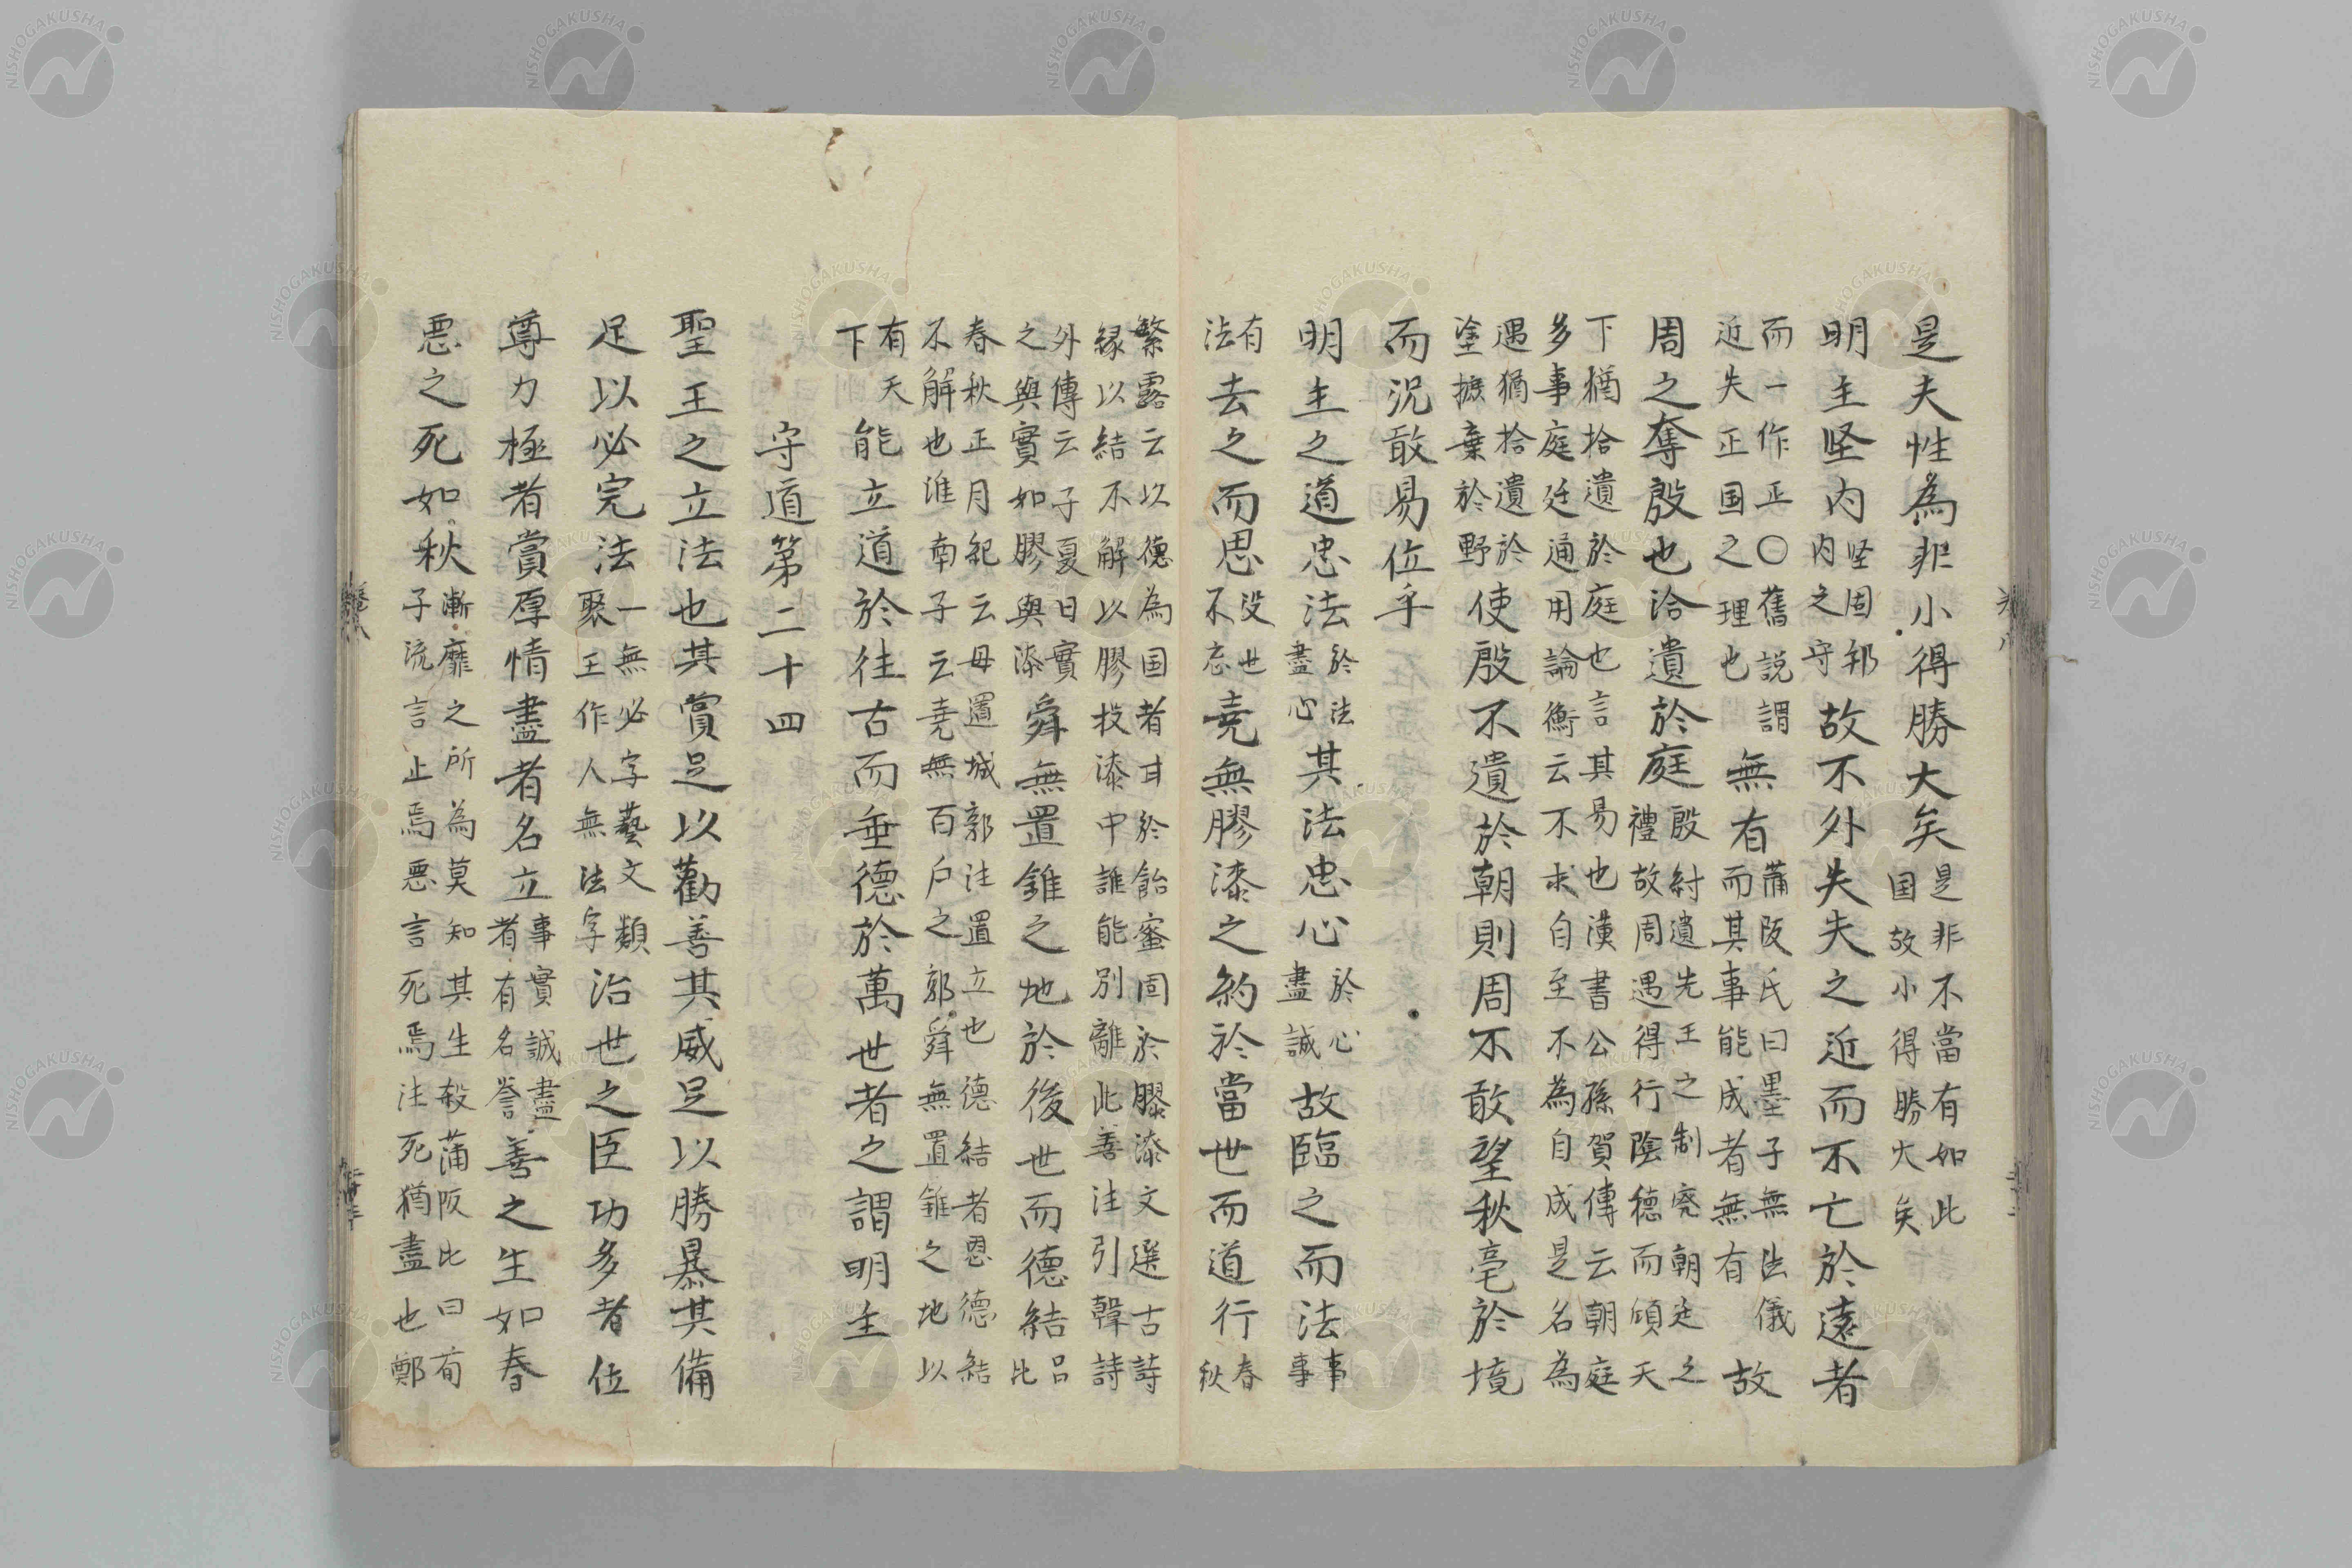 是夫性為非小得勝大矣是非不當有如此国故小得勝大矣
明主坚内坚固邦内之守故不外失失之近而不亡於遠者
而一作正〇舊説謂近失正国之理也無有蒲阪氏曰墨子無法儀而其事能成者無有故
周之奪殷也洽遺於庭殷紂遺先王之制廃朝廷之禮故周遇得行陰徳而傾天
下猶拾遺於庭也言其易也漢書公孫賀傳云朝庭多事庭廷通用論衡云不求自至不為自成是名為
遇猶拾遺於塗摭棄於野使殷不遺於朝則周不敢望秋毫於境
而況敢易位乎
明主之道忠法於法盡心其法忠心於心盡誠故臨之而法事事
有法去之而思没世不忘尭無膠漆之約於當世而道行春秋
繁露云以德為国者甘於飴蜜固於膠漆文選古詩縁以結不解以膠投漆中誰能別離此善注引韓詩
外傳云子夏曰實之與實如膠與漆舜無置錐之地於後世而德結呂比
春秋正月紀云毋置城郭注置立也德結者恩德結不解也淮南子云尭無百戶之郭舜無置錐之地以
有天下能立道於往古而垂德於萬世者之謂明主
守道第二十四
聖王之立法也其賞足以勸善其威足以勝暴其備
足以必完法一無必字藝文類聚王作人無法字治世之臣功多者位
尊力極者賞厚情盡者名立事實誠盡者有名誉善之生如春
悪之死如秋漸靡之所為莫知其生殺蒲阪比曰荀子流言止焉悪言死焉注死猶盡也鄭